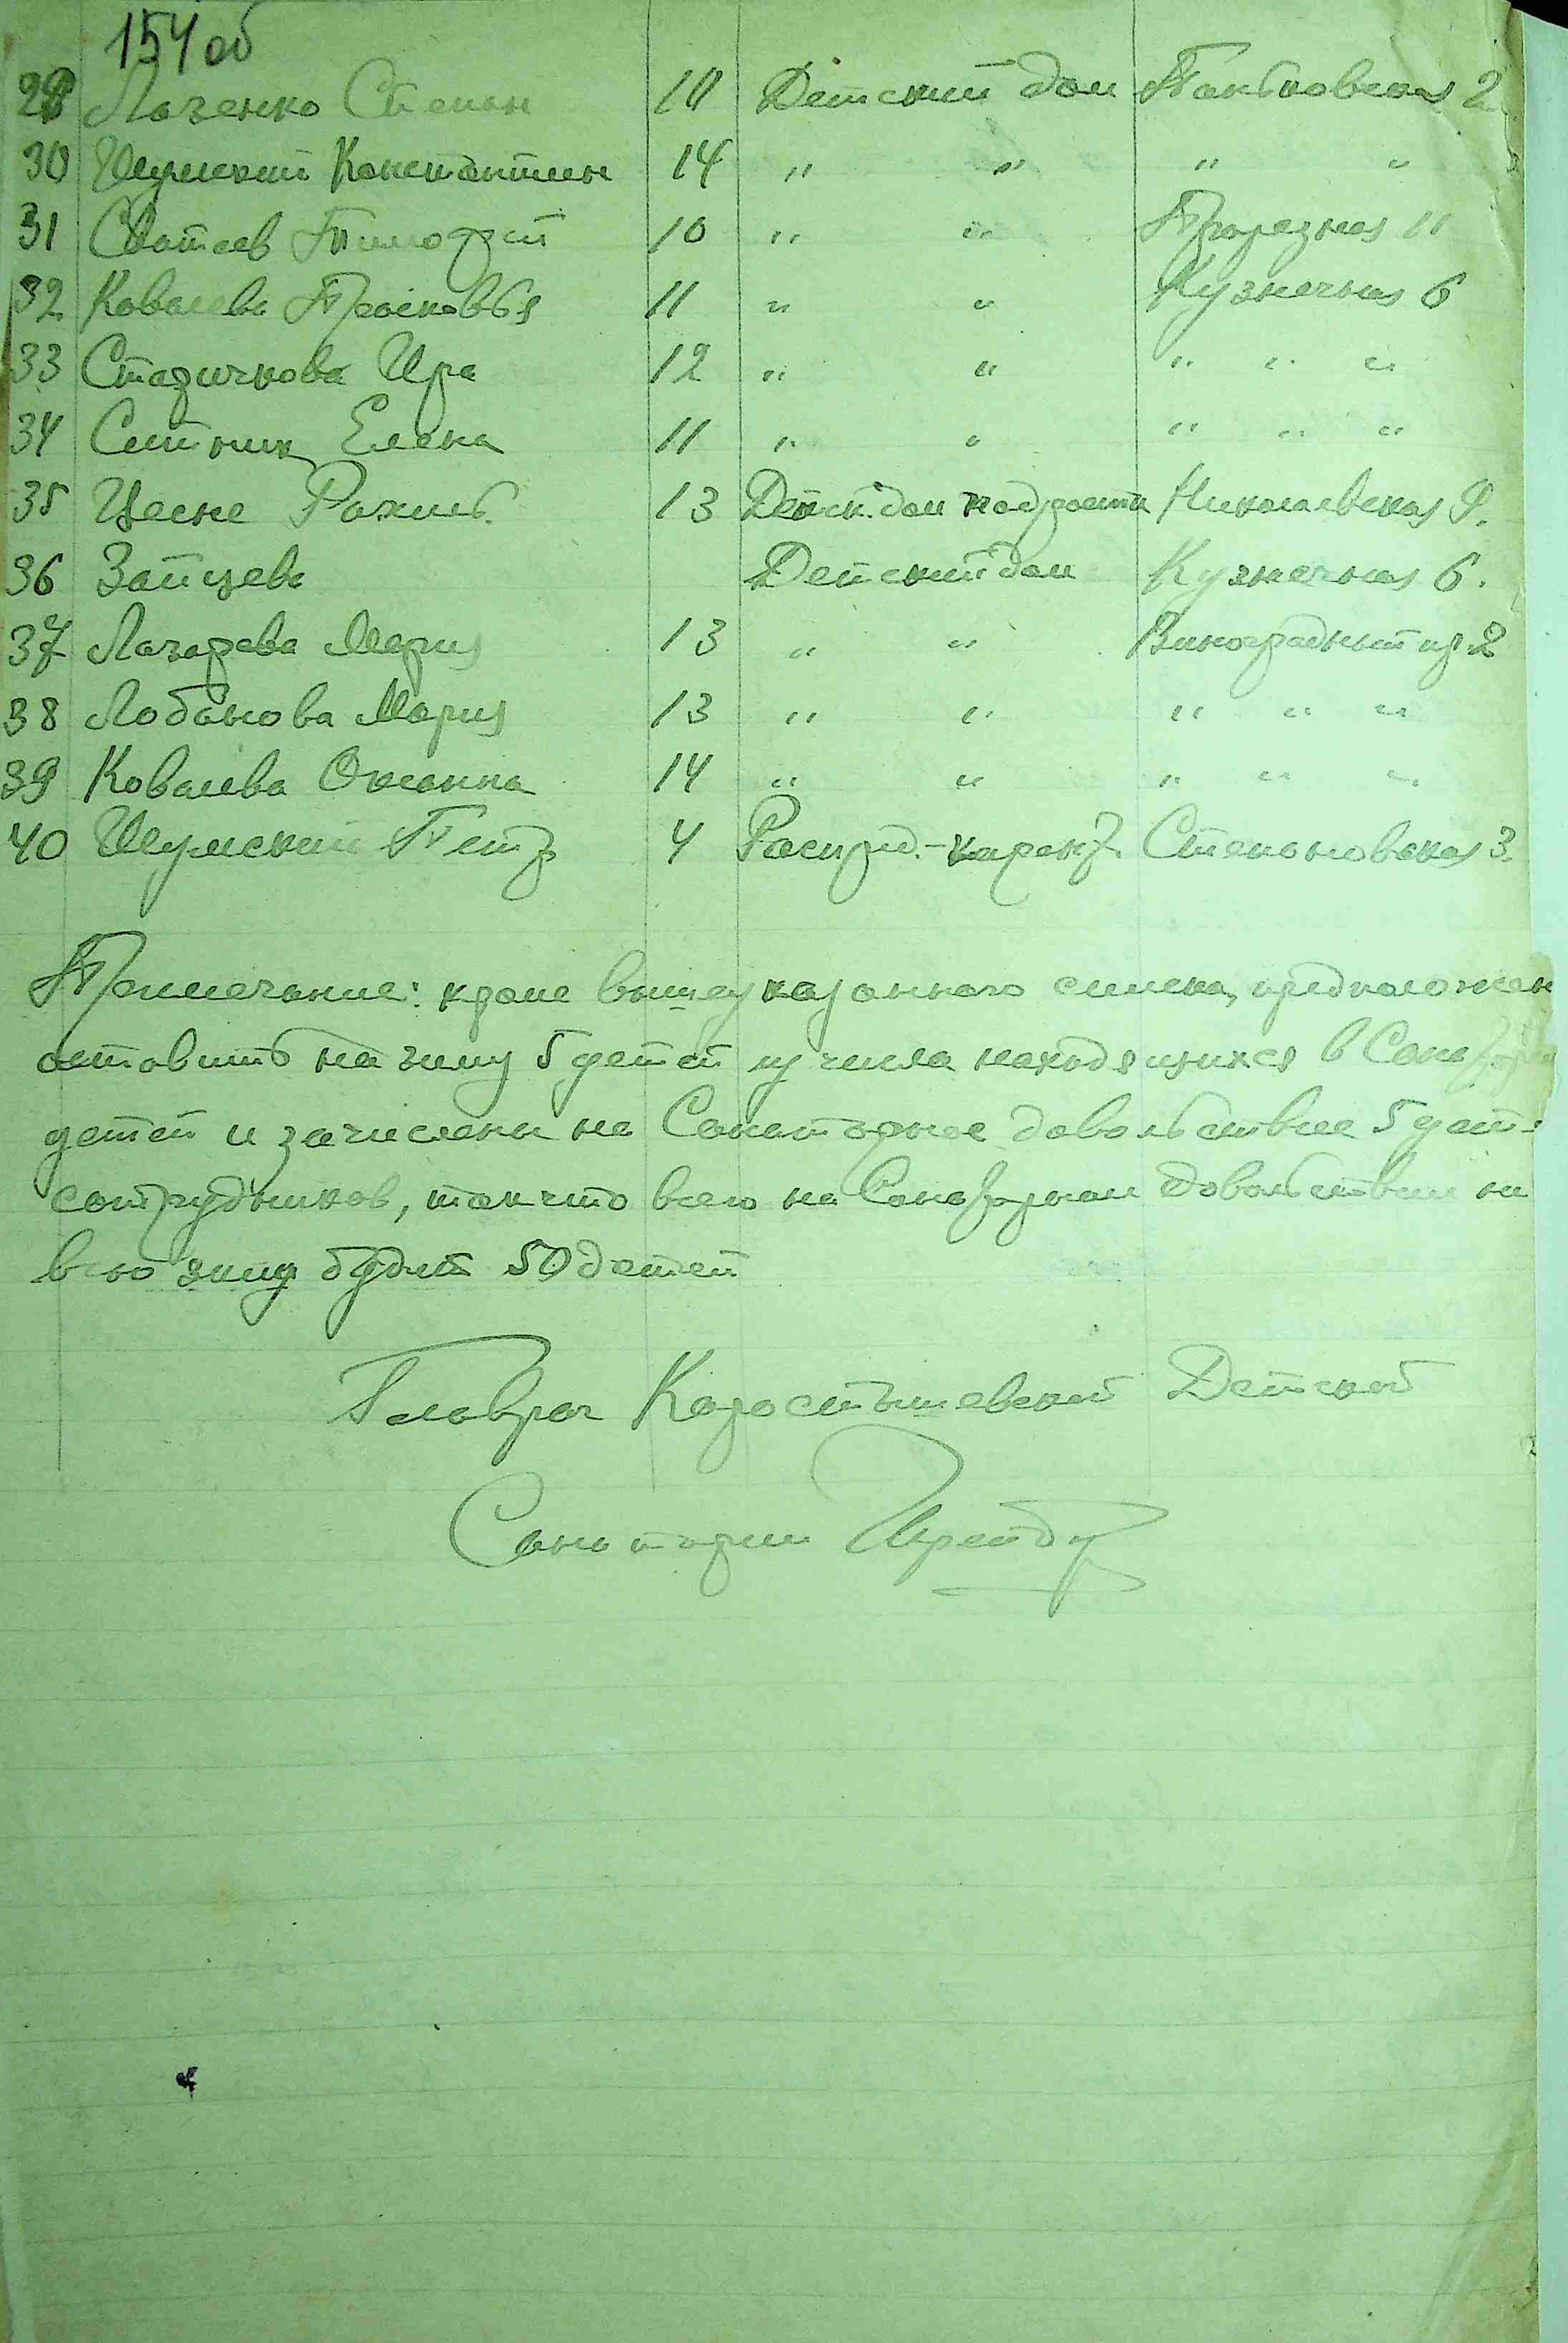 154 об
29 Лазенко Степан 10 Детский дом Паньковская 2
30 Шумский Константин 14 " " " "
31 Сватеев Тимофей 10 " " Прорезная 11
32 Ковалева Прасковья 11 " " Кузнечная 6
33 Стадичкова Ира 12 " " " " "
34 Ситник Елена 11 " " " " "
35 Рахиль 13 Детск. дом Николаевская 9.
36 Зайцева Детский дом Кузнечная 6.
37 Лазарева Мария 13 " " Виноградный пр. 2
38 Лобанова Мария 13 " " " " "
39 Ковалева Оксана 14 " " " " "
40 Шумский Петр 4 Распред.-карант. Степановская 3.
Примечание: кроме вышеуказанного списка, предположен
оставить на зиму 5 детей из числа находящихся в
детей и зачислены на Санаторное довольствие 5 дет-
сотрудников, так что всего на Санаторном довольствии на
всю зиму будет 50 детей
Главврач Коростышевской Детской
Санатории